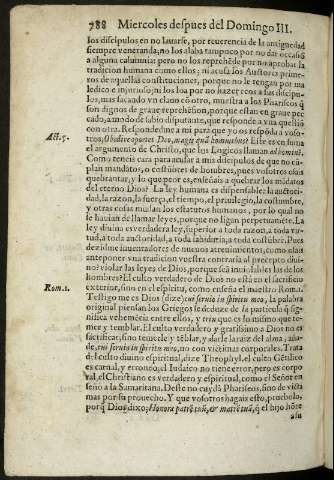 788 Miercoles despues del Domingo III.
los discipulos en no lauarse, por reuerencia de la antiguedad
siempre veneranda; no los alaba tampoco por no dar occasiõ
a alguna calumnia: pero no los reprehẽde por no aprobar la
tradicion humana como ellos; ni acusa los Auctores prime-
ros de aquellas constituciones, porque no le tengan por ma
ledico e injurioso; ni los loa por no hazer reos a sus discipu-
los, mas sacando vn clauo cõ otro, muestra a los Phariseos q̃
son dignos de graue reprehẽsion, porque estan en graue pec
cado, a modo de sabio disputante, que responde a vna questiõ
con otra. Respondedme a mi para que yo os respõda a voso-
Act. 5.
tros, Obedire oportet Deo, magis quã hominibus? Este es en suma
el argumento de Christo, que los Logicos llaman ad hominẽ.
Como teneis cara para acusar a mis discipulos de que no cũ-
plan mandatos, o costumbres de hombres, pues vosotros os
quebrantar, y lo que peor es, enseñais a quebrar los mãdatos
del eterno Dios? La ley humana es dispensable: la auctori-
dad, la razon, la fuerça, el tiempo, el priuilegio, la costumbre,
y otras cosas mudan los estatutos humanos, por lo qual no
se hauian de llamar leyes, porque no ligan perpetuamẽte. La
ley diuina es verdadera ley, superior a toda razon, a toda vir-
tud, a toda auctoridad, a toda sabiduria, a toda costũbre. Pues
dezidme inuentores de nueuos atreuimientos, como osais
anteponer vna tradicion vuestra contraria al precepto diui-
no? violar las leyes de Dios, porque seã inuiolables las de los
hombres? El culto verdadero de Dios no està en el sacrificio
Rom. 1.
exterior, sino en el espiritu, como enseña el maestro Roma.
Testigo me es Dios (dize) cui seruio in spiritu meo, la palabra
original piensan los Griegos se deduze de la particula q̃ sig-
nifica vehemẽcia entre ellos, y que es lo mismo que te-
mer y temblar. El culto verdadero y gratissimo a Dios no es
sacrificar, sino temerle y tẽblar, y darle la raiz del alma, aña-
de, cui seruio in spiritu meo, no con victimas corporales. Trata
de el culto diuino espiritual, dize Theophyl. el culto Gẽtilico
es carnal, y erroneo, el Iudaico no tiene error, pero es corpo
ral, el Christiano es verdadero y espiritual, como el Señor en
señò a la Samaritana. Deste no cuydà Phariseos, sino de victi
mas por su prouecho. Y que vosotros hagais esto, prueuolo,
porq̃ Dios dixo; Honora patrẽ tuũ, & matrẽ tuã, q̃ el hijo hõre
a su